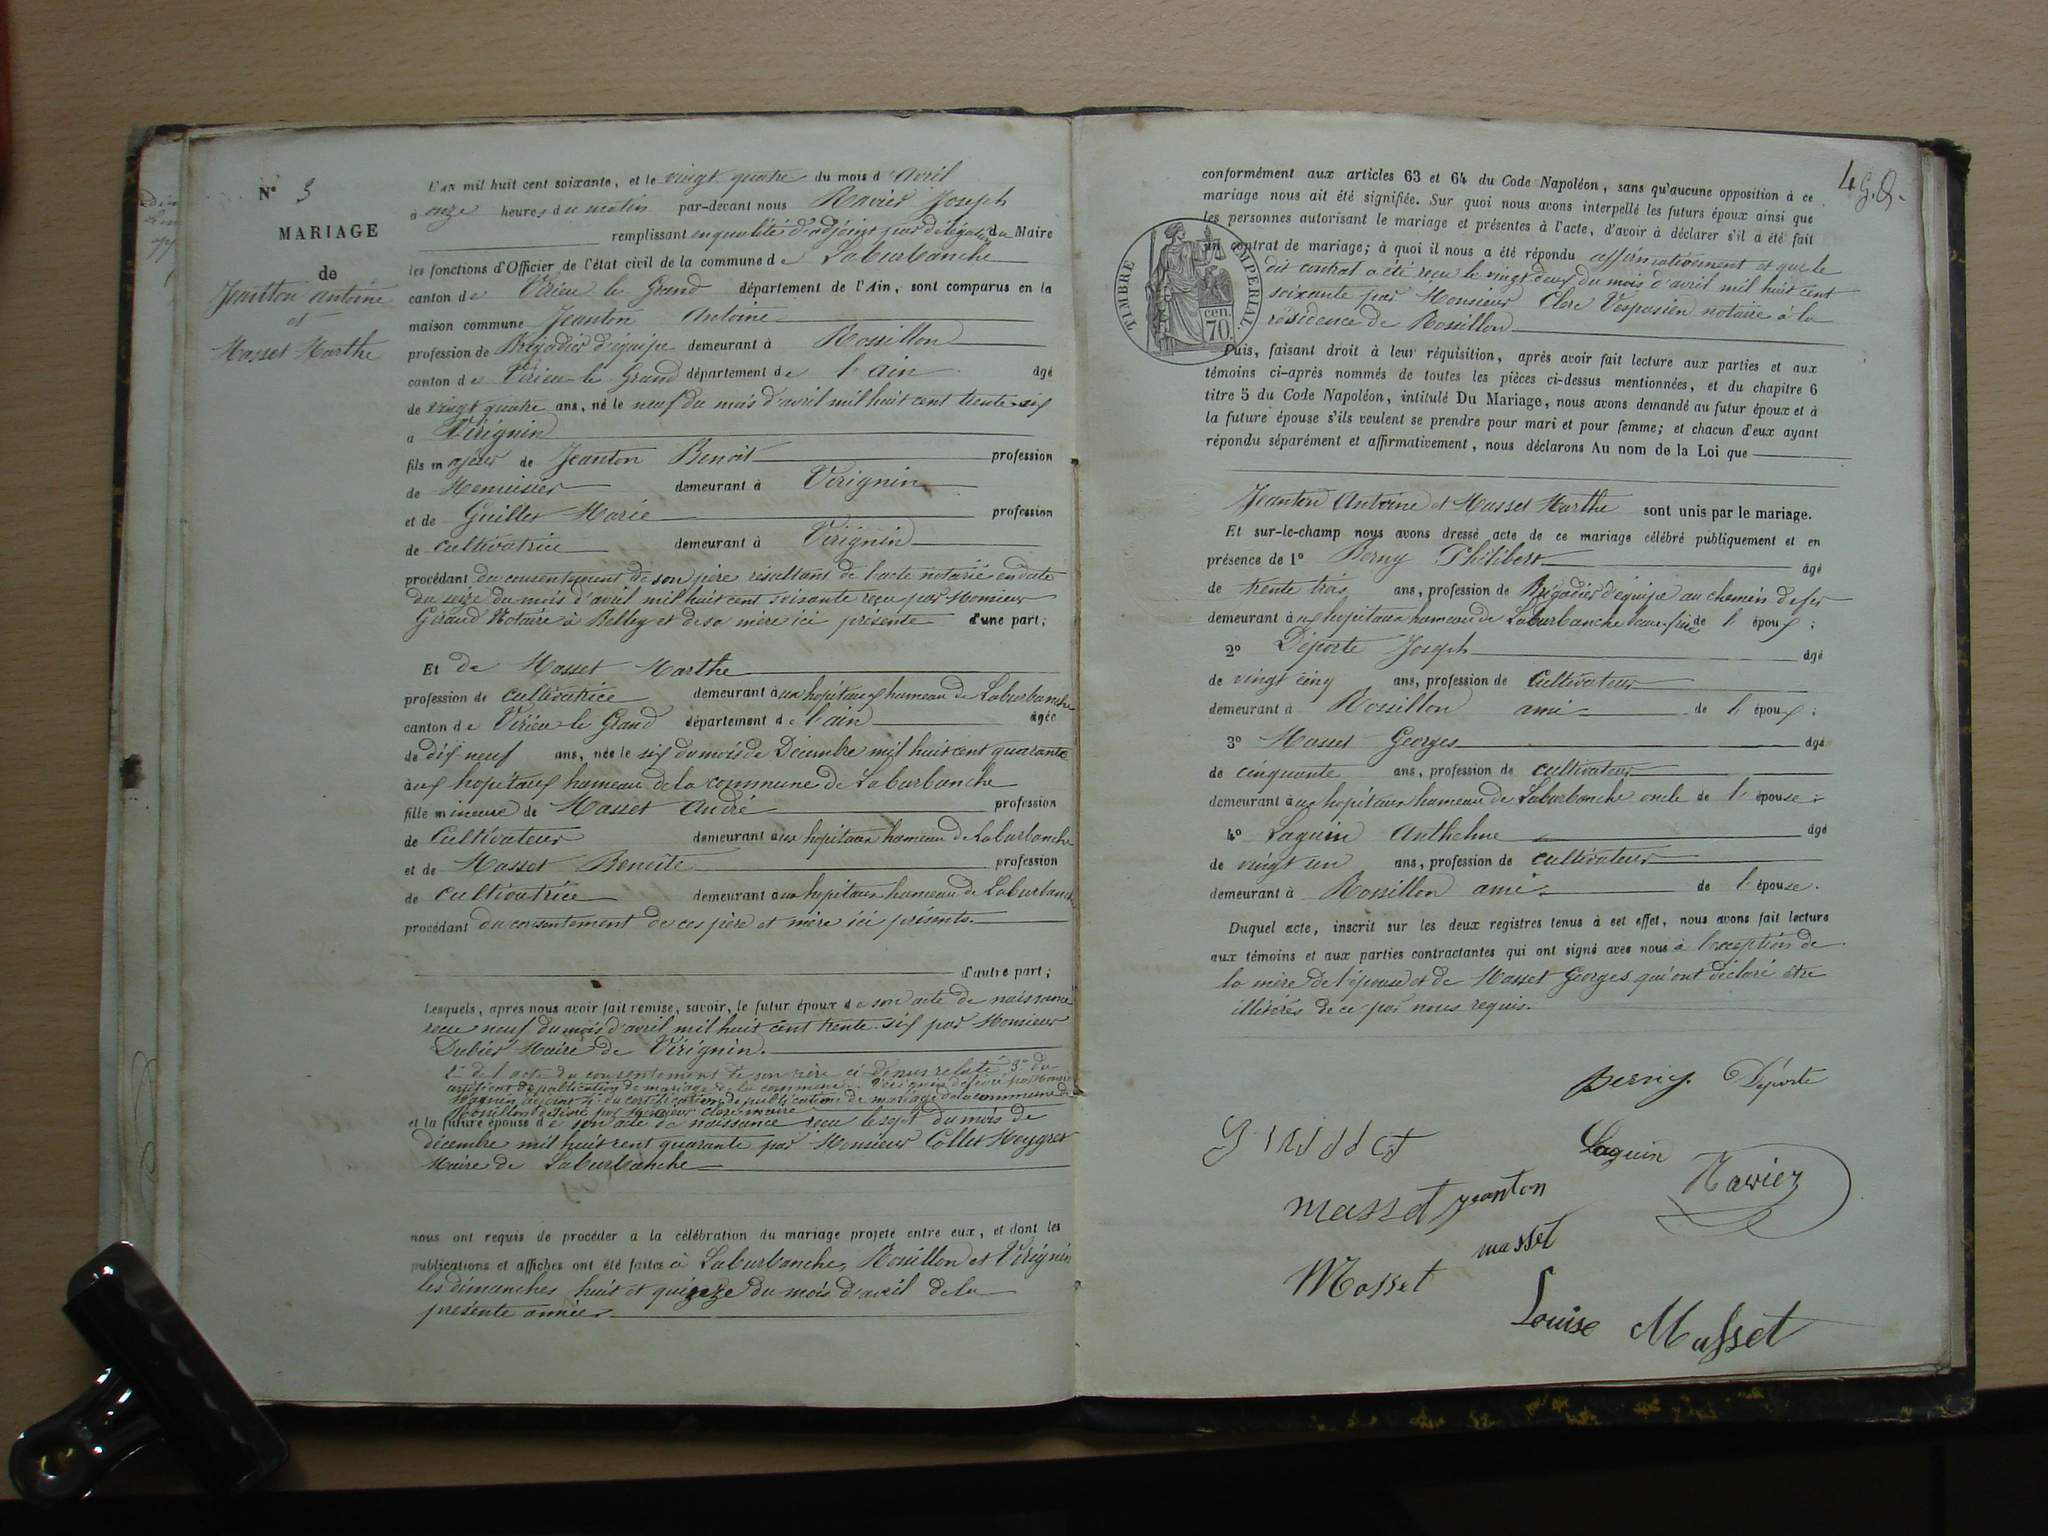 N° 3
MARIAGE
de
Jeantton Antoine
et
Masset Marthe
L'AN mil huit cent soixante, et le vingt quatre du mois d'avril
à onze heures du matin par-devant nous Ravier Joseph
remplissant en qualité d'adjoint par délégation du Maire
les fonctions d'Officier de l'état civil de la commune de Laburbanche
canton de Virieu le Grand département de l'Ain, sont comparus en la
maison commune Jeanton Antoine
profession de Brigadier d'équipe demeurant à Rossillon
canton de Virieu le Grand département de l'ain âgé
de vingt quatre ans, né le neuf du mois d'avril mil huit cent trente-six
a Virignin
fils majeur de Jeanton Benoit profession
de Menuisier demeurant à Virignin
et de Guillet Marie profession
de cultivatrice demeurant à Virignin
procédant du consentement de son père résultant de l'acte notarié en date
du seize du mois d'avril mil huit cent soixante reçu par Monsieur
Giraud Notaire à Belley et de sa mère ici présente d'une part;
Et de Masset Marthe
profession de cultivatrice demeurant aux hopitaux hameau de Laburbanche
canton de Virieu-le Grand département de l'ain âgée
de dix neuf ans, née le six du mois de Décembre mil huit cent quarante
aux hopitaux hameau de la commune de Laburbanche
fille mineure de Masset André profession
de Cultivateur demeurant aux hopitaux hameau de Laburbanche
et de Masset Benoîte profession
de cultivatrice demeurant aux hopitaux hameau de Laburbanche
procédant du consentement de ces père et mère ici présents.
d'autre part;
Lesquels, après nous avoir fait remise, savoir, le futur époux de son acte de naissance
reçu neuf du mois d'avril mil huit cent trente-six par Monsieur
Dubier Maire de Virignin.
2° de l'acte du consentement de son père ci-dessus relaté, 3° du
certificat de publication de mariage de la commune de Virignin délivré par Monsieur
Magnin adjoint 4° du certificat de publication de mariage de la commune de
Rossillon délivré par Monsieur Clerc maire
et la future épouse de son acte de naissance reçu le sept du mois de
décembre mil huit cent quarante par Monsieur Collet Meygret
Maire de Laburbanche
nous ont requis de procéder à la célébration du mariage projeté entre eux, et dont les
publications et affiches ont été faites à Laburbanche, Rossillon et Virignin
les dimanches huit et quinze du mois d'avril de la
présente année
4
conformément aux articles 63 et 64 du Code Napoléon, sans qu'aucune opposition à ce
mariage nous ait été signifiée. Sur quoi nous avons interpellé les futurs époux ainsi que
les personnes autorisant le mariage et présentes à l'acte, d'avoir à déclarer s'il a été fait
un contrat de mariage; à quoi il nous a été répondu affirmativement et que le
dit contrat a été reçu le vingt deux du mois d'avril mil huit cent
soixante par Monsieur Clerc Vespasien notaire à la
résidence de Rossillon
TIMBRE IMPERIAL
70 cen.
Puis, faisant droit à leur réquisition, après avoir fait lecture aux parties et aux
témoins ci-après nommés de toutes les pièces ci-dessus mentionnées, et du chapitre 6
titre 5 du Code Napoléon, intitulé Du Mariage, nous avons demandé au futur époux et à
la future épouse s'ils veulent se prendre pour mari et pour femme; et chacun d'eux ayant
répondu séparément et affirmativement, nous déclarons Au nom de la Loi que
Jeanton Antoine et Masset Marthe sont unis par le mariage.
Et sur-le-champ nous avons dressé acte de ce mariage célébré publiquement et en
présence de 1° Berny Philibert âgé
de trente trois ans, profession de Brigadier d'équipe au chemin de fer
demeurant aux hopitaux hameau de Laburbanche beau-frère de l'époux;
2° Déporte Joseph âgé
de vingt cinq ans, profession de Cultivateur
demeurant à Rossillon ami de l'époux;
3° Masset Georges âgé
de cinquante ans, profession de cultivateur
demeurant aux hopitaux hameau de Laburbanche oncle de l'épouse;
4° Laguin Anthelme âgé
de vingt un ans, profession de cultivateur
demeurant à Rossillon ami de l'épouse.
Duquel acte, inscrit sur les deux registres tenus à cet effet, nous avons fait lecture
aux témoins et aux parties contractantes qui ont signé avec nous à l'exception de
la mère de l'épouse et de Masset Georges qui ont déclaré être
illitérés de ce par nous requis.
Berny Déporte
Guillet Laguin Ravier
masset jeanton
Masset masset
Louise Masset